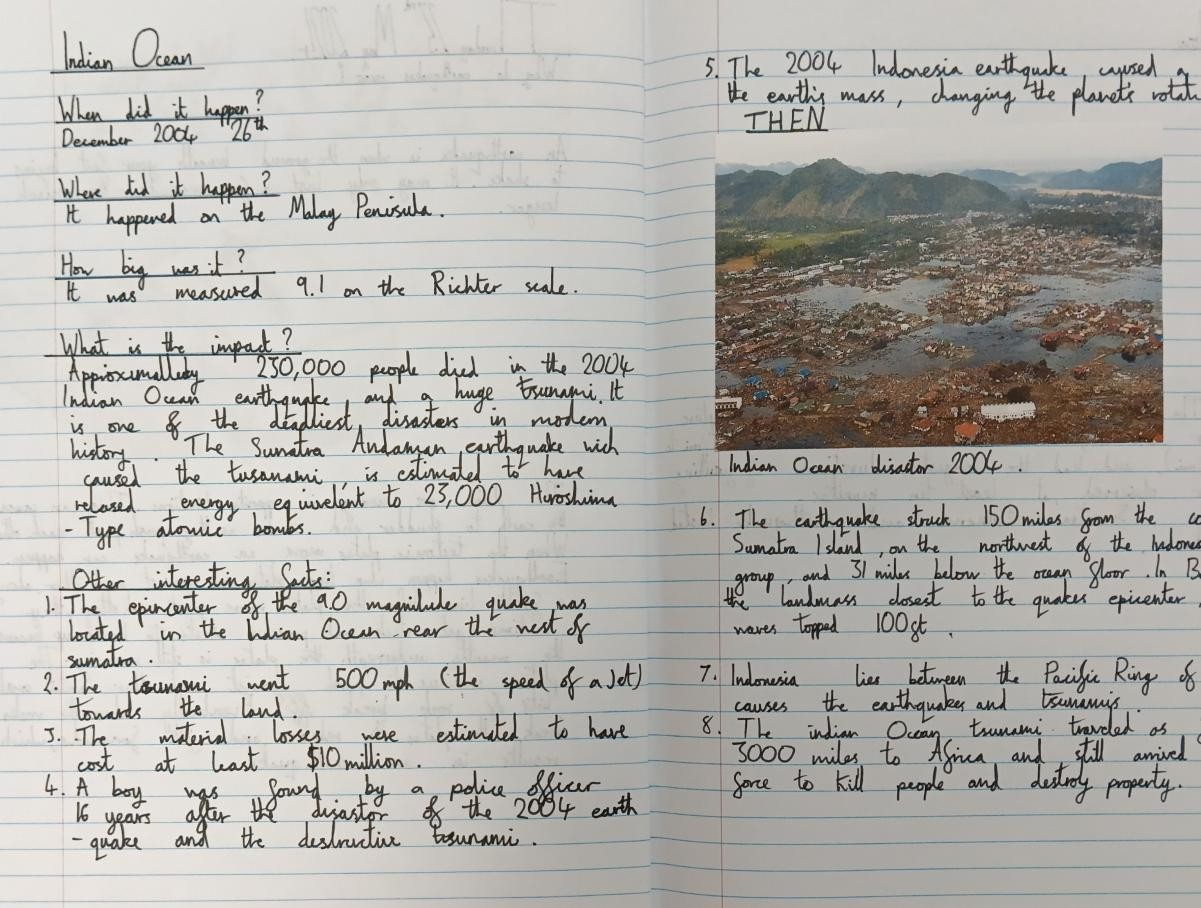 Indian Ocean
When did it happen?
December 2004 26th
Where did it happen?
It happened on the Malay Penisula.
How big was it?
It was measured 9.1 on the Richter scale.
What is the impact?
Approximalledy 230,000 people died in the 2004
Indian Ocean earthquake and a huge tsunami. It
is one of the deadliest disasters in modern
history. The Sumatra Andaman earthquake wich
caused the tusanami, is estimated to have
relosed energy equivelent to 23,000 Hiroshima
- Type atomic bombs.
Other interesting facts:
1. The epincenter of the 9.0 magnitude quake was
located in the Indian Ocean near the west of
sumatra.
2. The tsunami went 500 mph (the speed of a Jet)
towards the land.
3. The material losses were estimated to have
cost at least $10 million.
4. A boy was found by a police officer
16 years after the disastor of the 2004 earth
- quake and the destructive tsunami.
5. The 2004 Indonesia earthquake caused a
the earth's mass, changing the planet's rotat
THEN
Indian Ocean disastor 2004.
6. The earthquake struck 150 miles from the co
Sumatra Island, on the northwest of the Indones
group, and 31 miles below the ocean floor. In B
the landmass closest to the quakes epicenter.
waves topped 100ft.
7. Indonesia lies between the Pacific Ring of
causes the earthquakes and tsunamis.
8. The indian Ocean tsunami traveled as
3000 miles to Africa and still arrived
force to kill people and destroy property.